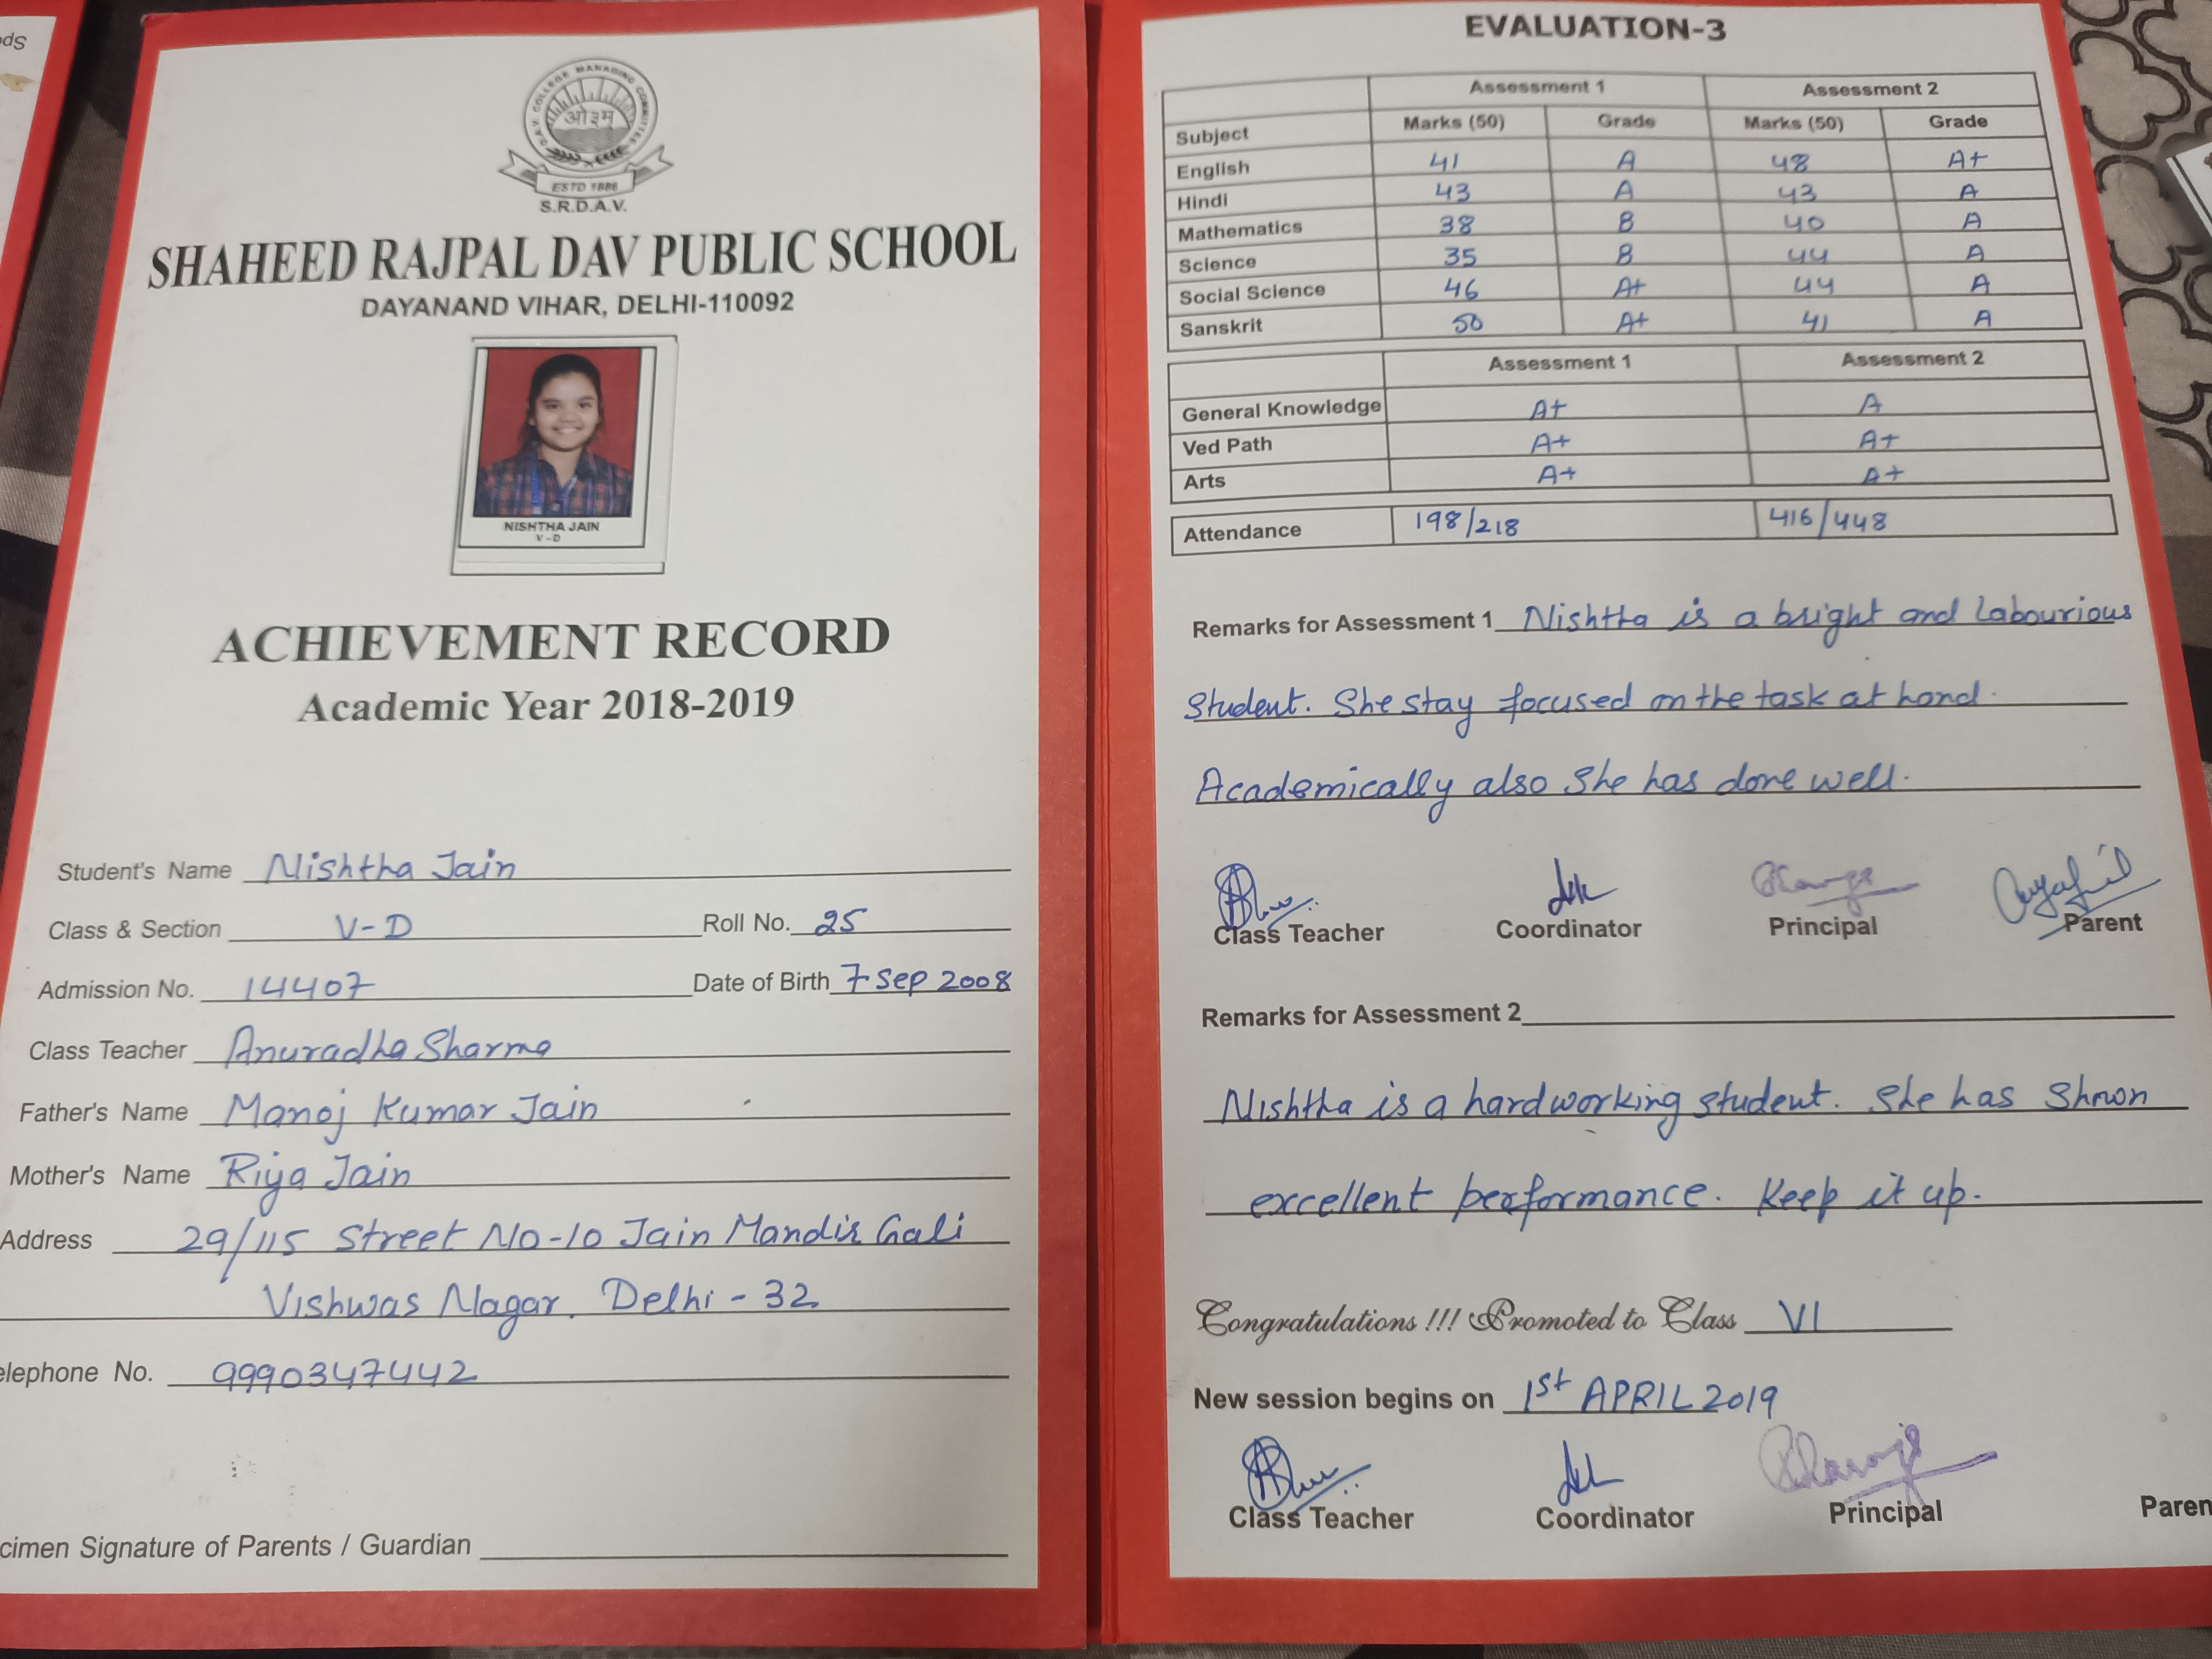 ods
D.A.V. COLLEGE MANAGING COMMITTEE
ओ३म्
ESTD 1886
S.R.D.A.V.
SHAHEED RAJPAL DAV PUBLIC SCHOOL
DAYANAND VIHAR, DELHI-110092
NISHTHA JAIN
V-D
ACHIEVEMENT RECORD
Academic Year 2018-2019
Student's Name Nishtha Jain
Class & Section V-D Roll No. 25
Admission No. 14407 Date of Birth 7 Sep 2008
Class Teacher Anuradha Sharma
Father's Name Manoj Kumar Jain
Mother's Name Riya Jain
Address 29/115 Street No-10 Jain Mandir Gali
Vishwas Nagar, Delhi - 32
elephone No. 9990347442
cimen Signature of Parents / Guardian
EVALUATION-3
Assessment 1 Assessment 2
Subject Marks (50) Grade Marks (50) Grade
English 41 A 48 A+
Hindi 43 A 43 A
Mathematics 38 B 40 A
Science 35 B 44 A
Social Science 46 A+ 44 A
Sanskrit 50 A+ 41 A
Assessment 1 Assessment 2
General Knowledge A+ A
Ved Path A+ A+
Arts A+ A+
Attendance 198/218 416/448
Remarks for Assessment 1 Nishtha is a bright and labourious
Student. She stay focused on the task at hand.
Academically also She has done well.
Class Teacher Coordinator Principal Parent
Remarks for Assessment 2
Nishtha is a hardworking student. She has Shown
excellent performance. Keep it up.
Congratulations !!! Promoted to Class VI
New session begins on 1st APRIL 2019
Class Teacher Coordinator Principal Paren